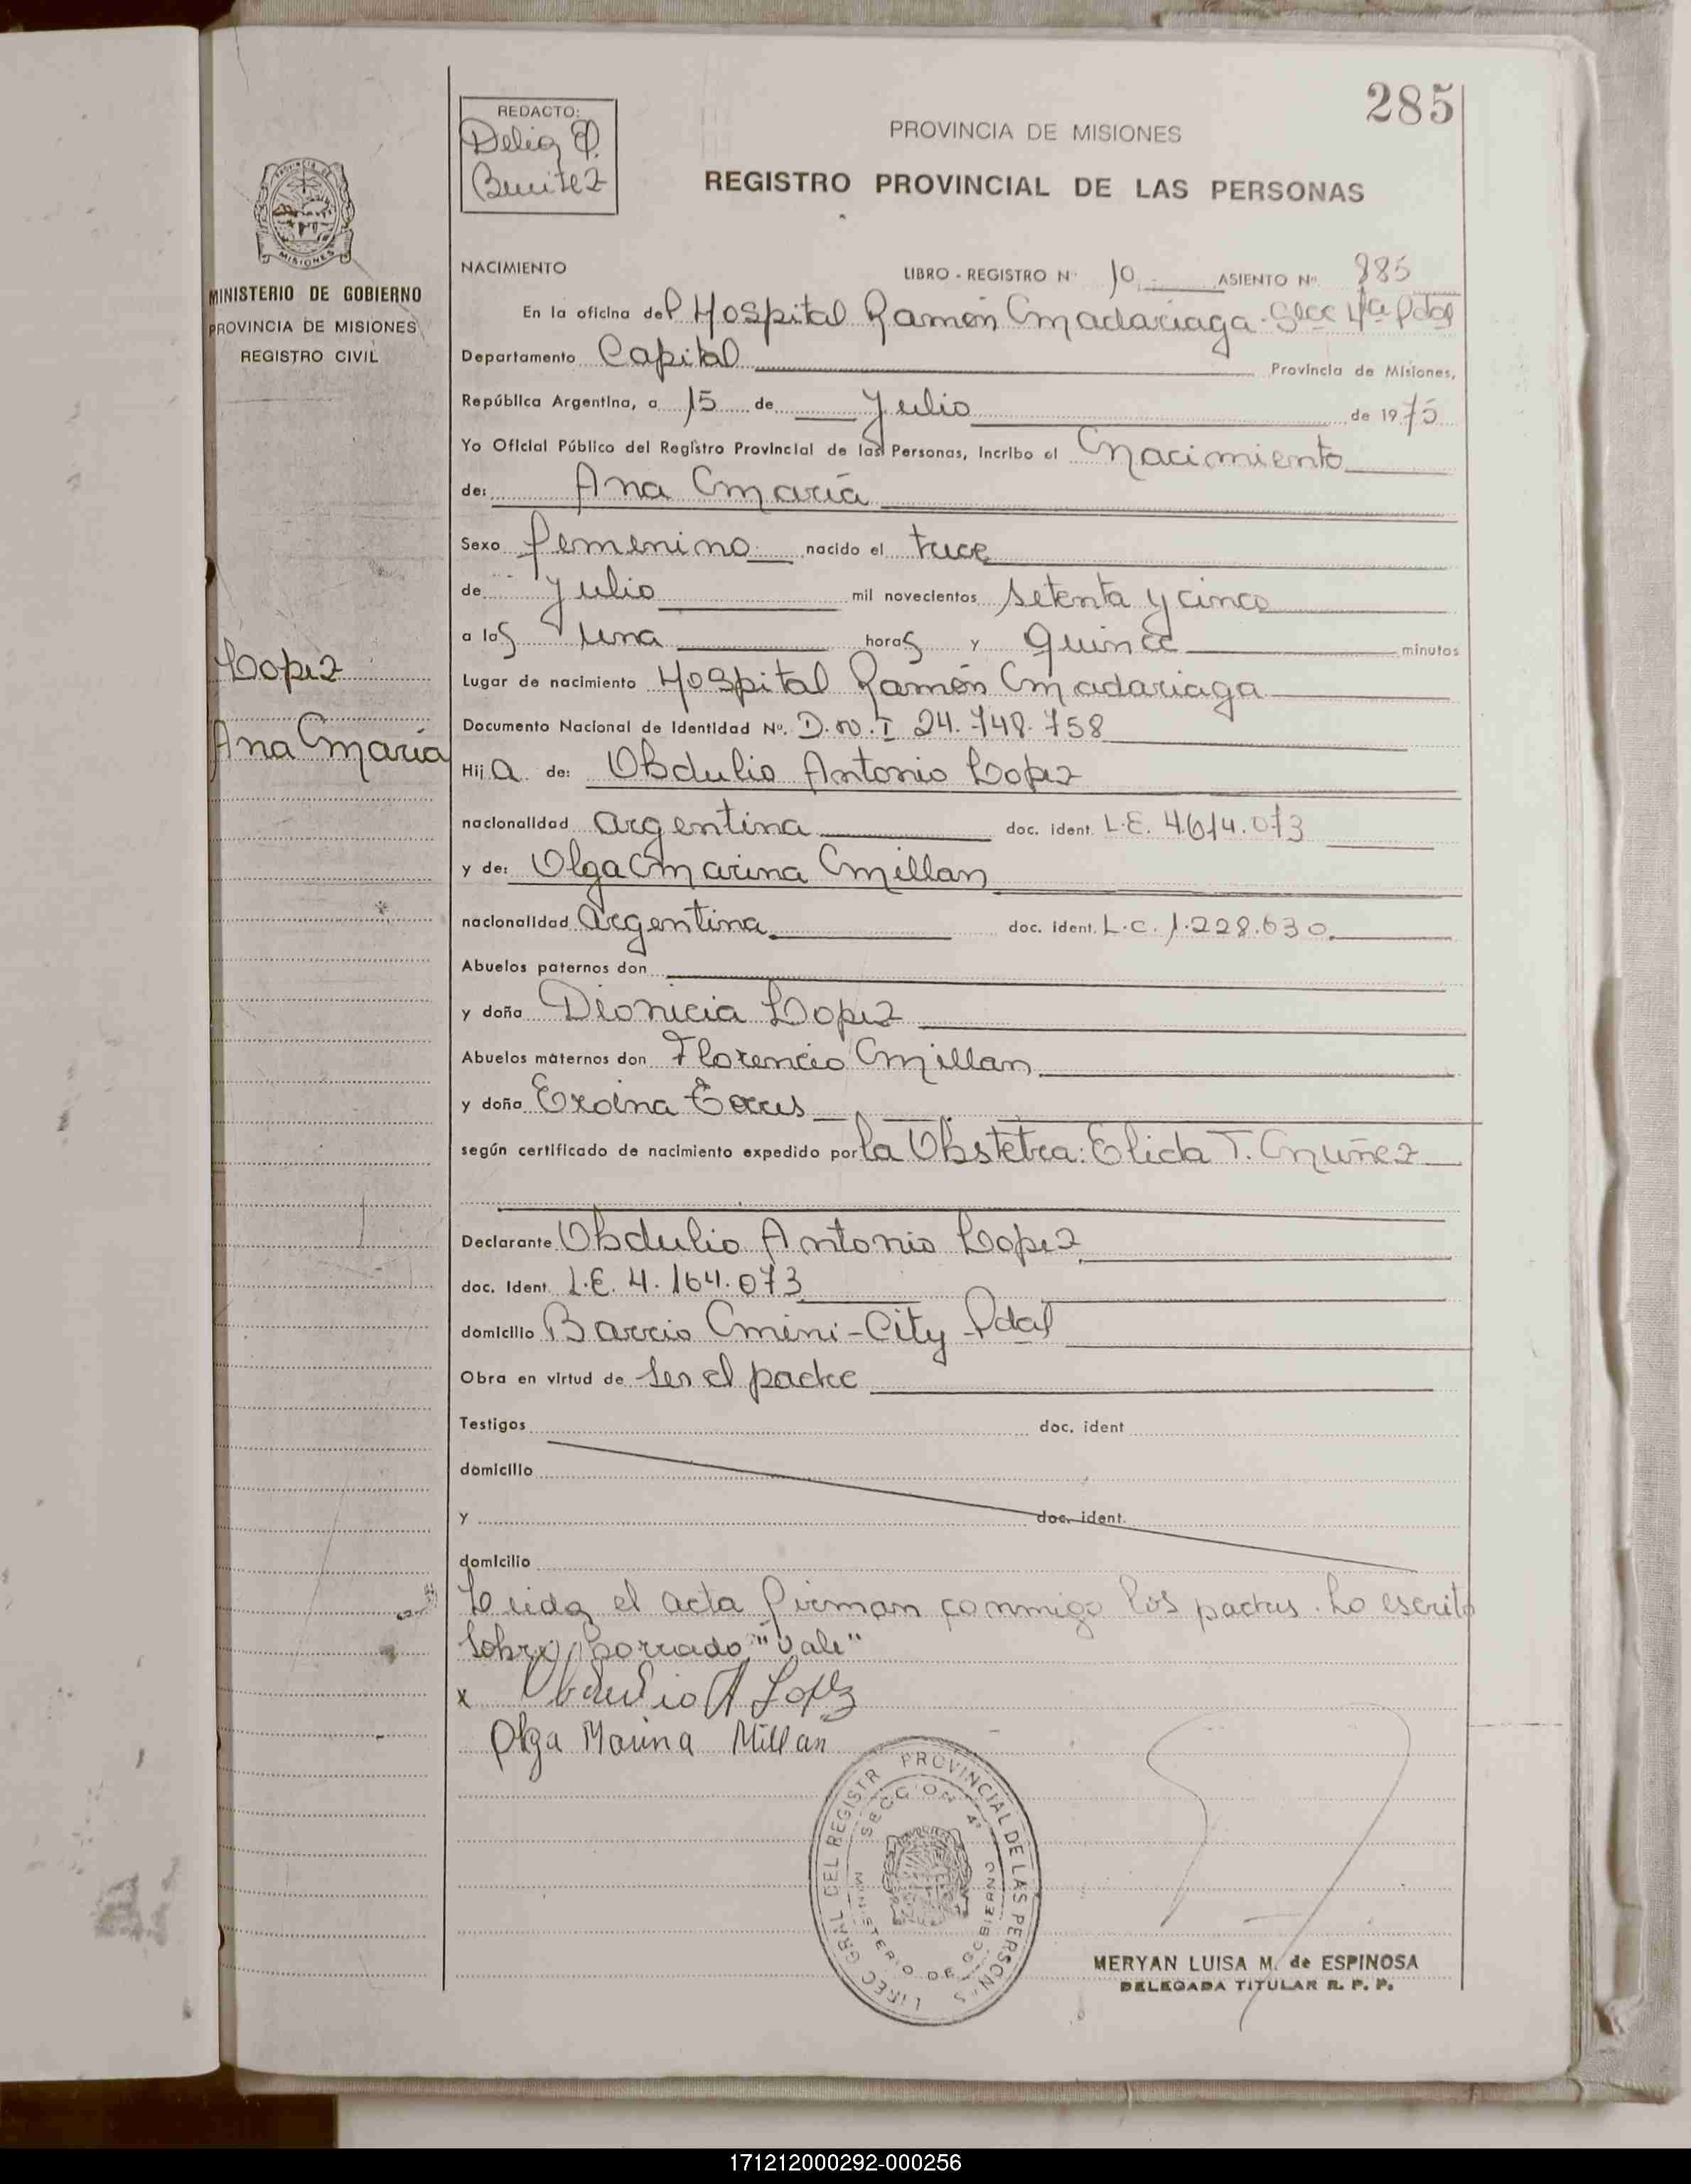 285
REDACTO:
Delia
Benitez
PROVINCIA DE MISIONES
REGISTRO PROVINCIAL DE LAS PERSONAS
PROVINCIA DE
MISIONES
MINISTERIO DE GOBIERNO
PROVINCIA DE MISIONES
REGISTRO CIVIL
NACIMIENTO
LIBRO - REGISTRO Nº 10 ASIENTO Nº 885
En la oficina del Hospital Ramón Madariaga - Secc 4ta Pdas
Departamento Capital Provincia de Misiones,
República Argentina, a 15 de Julio de 1975
Yo Oficial Público del Registro Provincial de las Personas, Incribo el Nacimiento
de: Ana María
Sexo femenino nacido el trece
de Julio mil novecientos setenta y cinco
a las una horas y quince minutos
Lopez
Ana María
Lugar de nacimiento Hospital Ramón Madariaga
Documento Nacional de Identidad Nº. D.N.I 24.748.758
Hija de: Obdulio Antonio Lopez
nacionalidad argentina doc. ident. L.E. 4.614.073
y de: Olga Marina Millan
nacionalidad argentina doc. ident. L.C. 1.228.630
Abuelos paternos don
y doña Dionicia Lopez
Abuelos maternos don Florencio Millan
y doña
según certificado de nacimiento expedido por la Obstetra: Elida T. Nuñez
Declarante Obdulio Antonio Lopez
doc. ident. L.E. 4.164.073
domicilio Barrio Mini-City Pdas
Obra en virtud de ser el padre
Testigos doc. ident
domicilio
y doc. ident.
domicilio
Leida el acta firman conmigo los padres. Lo escrito
sobre borrado "vale"
x Obdulio A Lopez
Olga Marina Millan
DIREC GRAL DEL REGISTR PROVINCIAL DE LAS PERSONAS
SECCION 4ª
MINISTERIO DE GOBIERNO
MERYAN LUISA M. de ESPINOSA
DELEGADA TITULAR R. P. P.
171212000292-000256